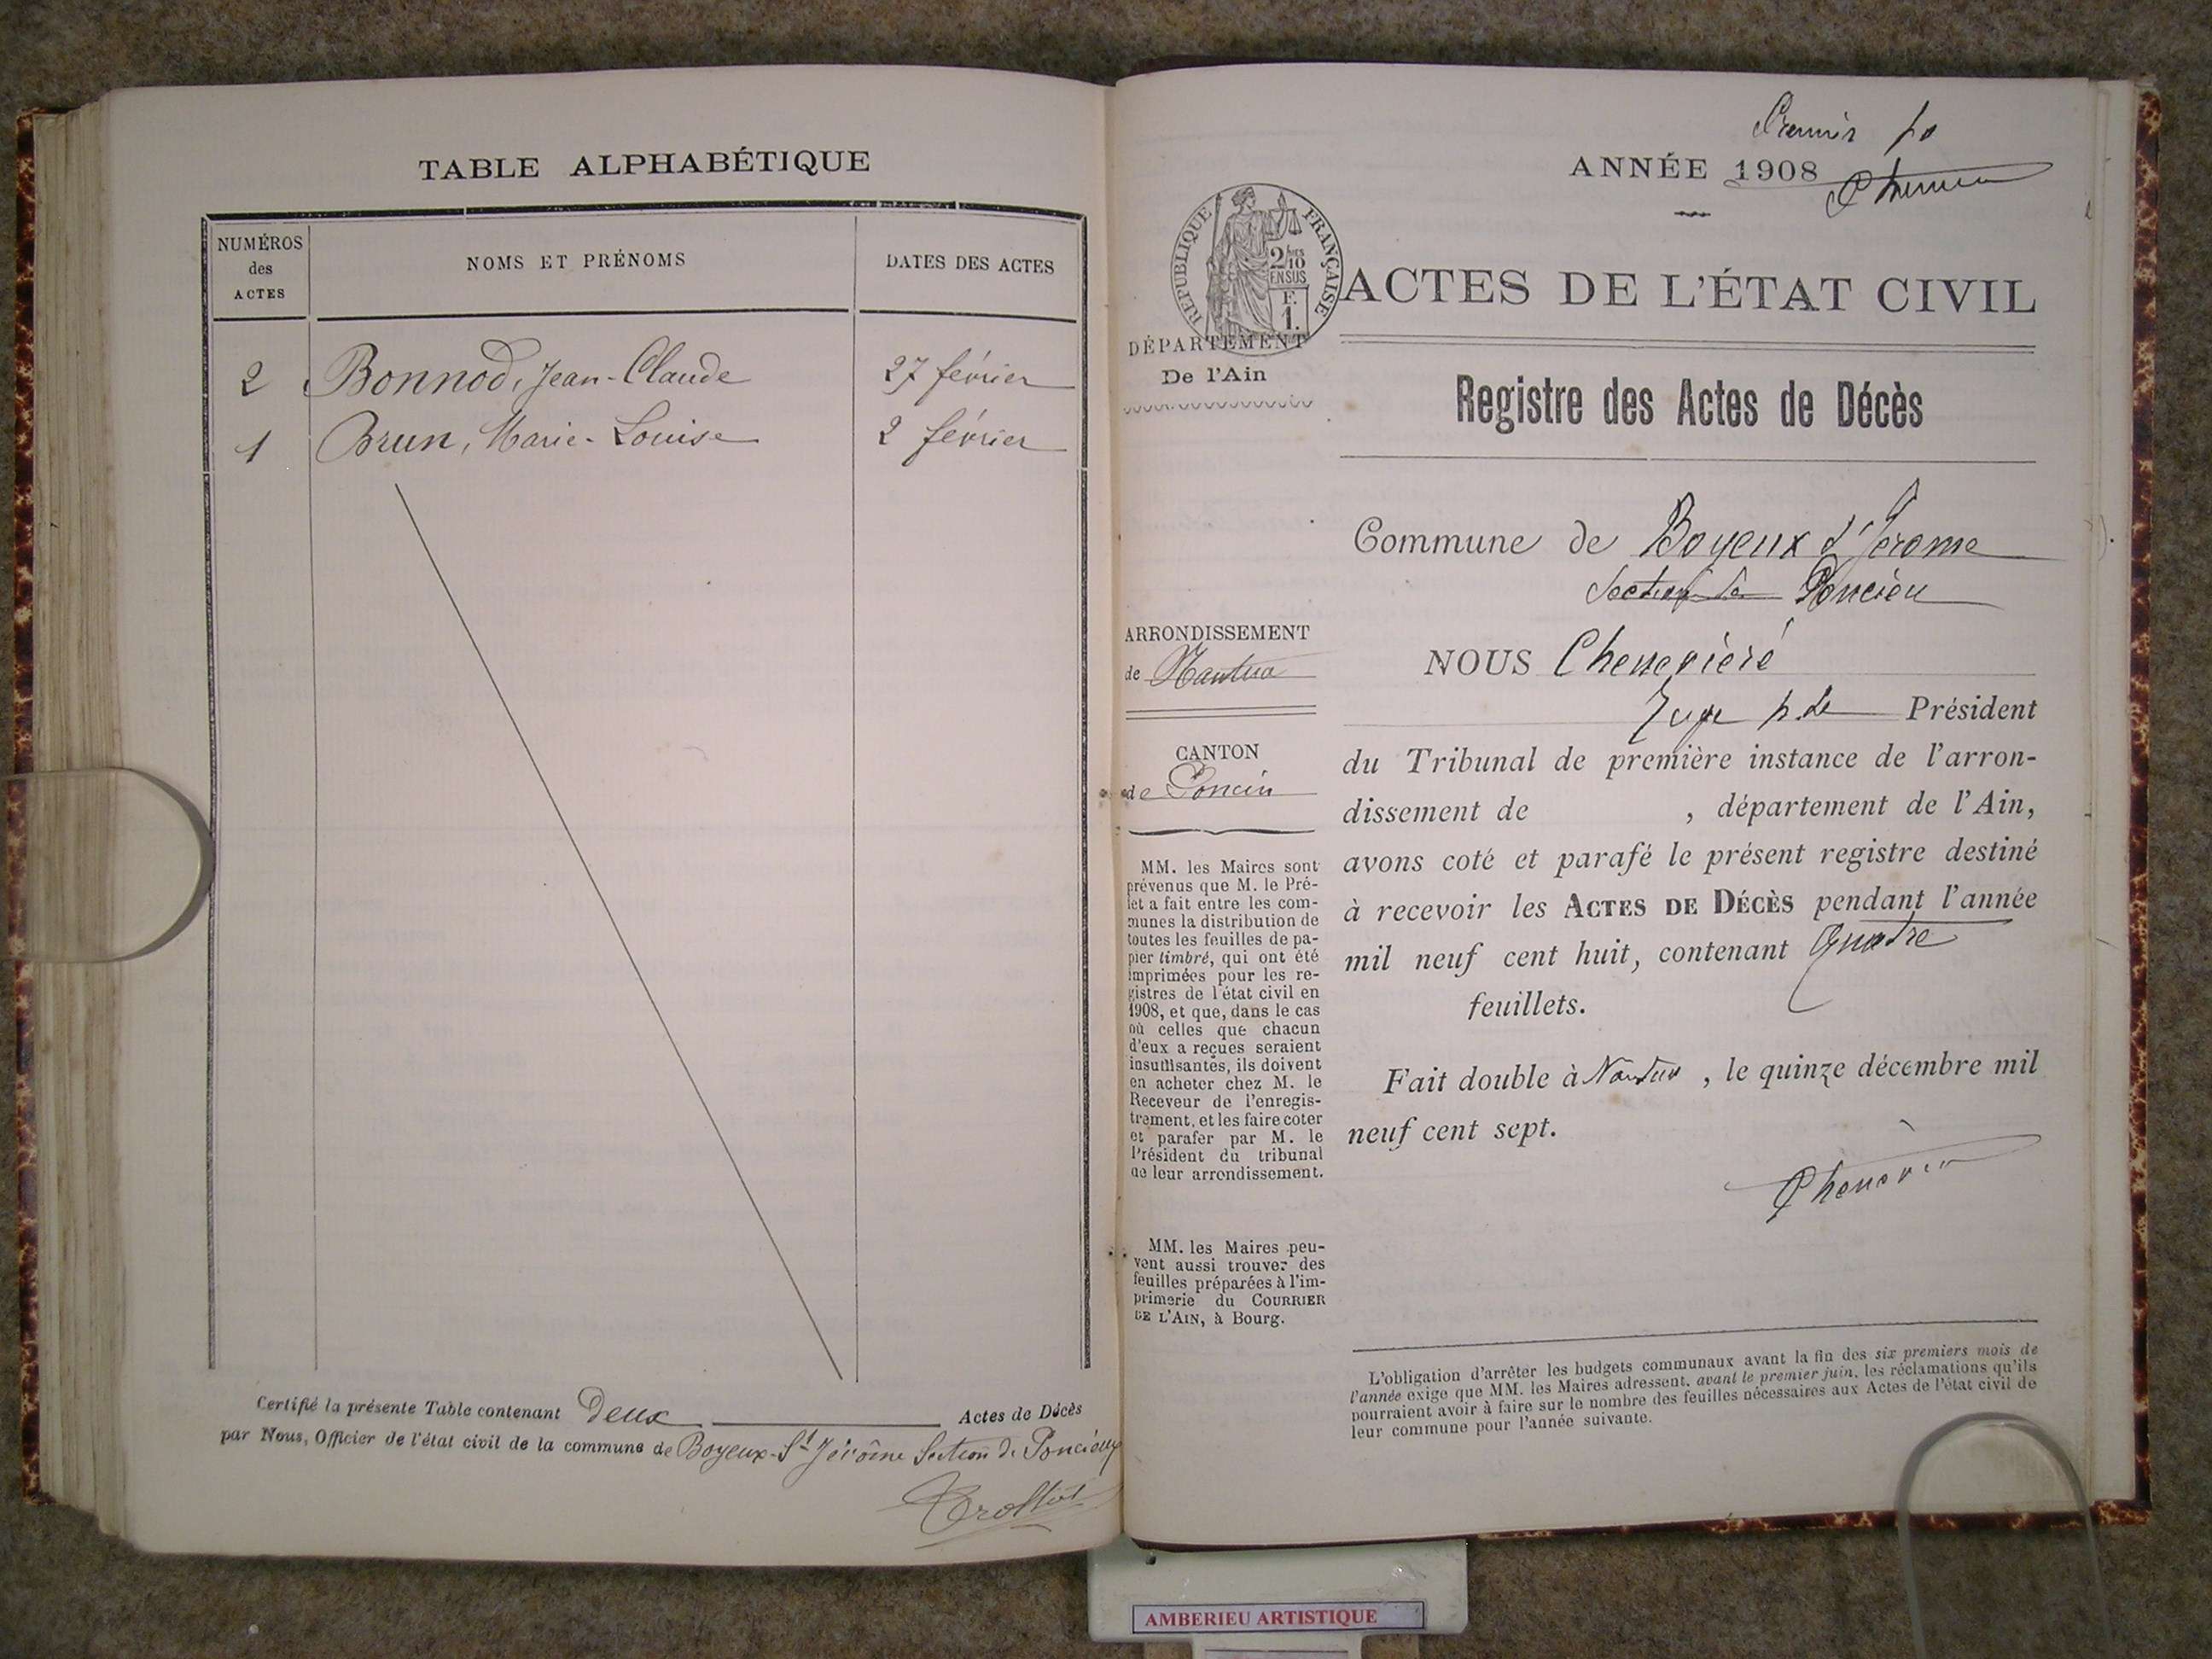 TABLE ALPHABÉTIQUE
NUMÉROS
des
ACTES
NOMS ET PRÉNOMS
DATES DES ACTES
2 Bonnod, Jean-Claude 27 février
1 Brun, Marie-Louise 2 février
Certifié la présente Table contenant Deux Actes de Décès
par Nous, Officier de l'état civil de la commune de Boyeux-St Jérôme Section de Poncieux
Premier
ANNÉE 1908
RÉPUBLIQUE FRANÇAISE
2/10
EN SUS
F.
1.
ACTES DE L'ÉTAT CIVIL
DÉPARTEMENT
De l'Ain
Registre des Actes de Décès
Commune de Boyeux St Jérome
Section de Poncieu
ARRONDISSEMENT
de Nantua
CANTON
de Poncin
MM. les Maires sont
prévenus que M. le Pré-
fet a fait entre les com-
munes la distribution de
toutes les feuilles de pa-
pier timbré, qui ont été
imprimées pour les re-
gistres de l'état civil en
1908, et que, dans le cas
où celles que chacun
d'eux a reçues seraient
insuffisantes, ils doivent
en acheter chez M. le
Receveur de l'enregis-
trement, et les faire coter
et parafer par M. le
Président du tribunal
de leur arrondissement.
MM. les Maires peu-
vent aussi trouver des
feuilles préparées à l'im-
primerie du COURRIER
DE L'AIN, à Bourg.
NOUS Chenevière
Juge p. le Président
du Tribunal de première instance de l'arron-
dissement de , département de l'Ain,
avons coté et parafé le présent registre destiné
à recevoir les ACTES DE DÉCÈS pendant l'année
mil neuf cent huit, contenant Quatre
feuillets.
Fait double à Nantua, le quinze décembre mil
neuf cent sept.
L'obligation d'arrêter les budgets communaux avant la fin des six premiers mois de
l'année exige que MM. les Maires adressent, avant le premier juin, les réclamations qu'ils
pourraient avoir à faire sur le nombre des feuilles nécessaires aux Actes de l'état civil de
leur commune pour l'année suivante.
AMBERIEU ARTISTIQUE